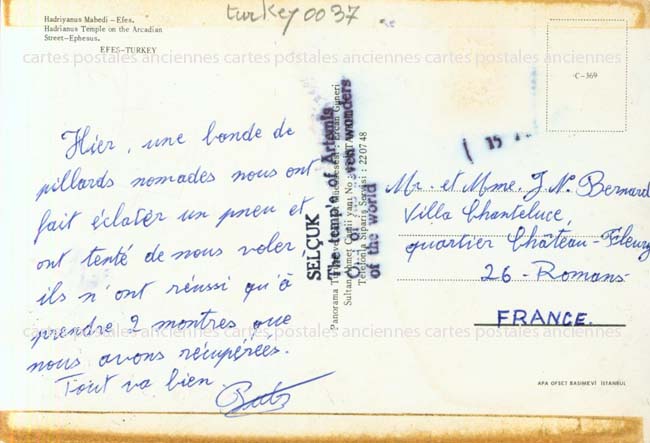 turkey0037
Hadriyanus Mabedi – Efes.
Hadrianus Temple on the Arcadian
Street–Ephesus.
EFES–TURKEY
cartes postales anciennes cartes postales anciennes cartes postales anciennes
C–369
15
Hier, une bande de
pillards nomades nous ont
fait éclater un pneu et
ont tenté de nous voler
ils n'ont réussi qu'à
prendre 2 montres que
nous avons récupérées.
Tout va bien.
SELÇUK
The temple of Artemis
of seven wonders
of the world
Panorama Ercan Güneri
Sultan Ahmet Camii yanı No
Telefonla Sipariş Servisi: 22 07 48
Mr. et Mme. J.N. Bernard
Villa Chanteluce,
quartier Château-Fleury
26 - Romans
FRANCE.
cartes postales anciennes cartes postales anciennes cartes postales anciennes
APA OFSET BASIMEVİ İSTANBUL